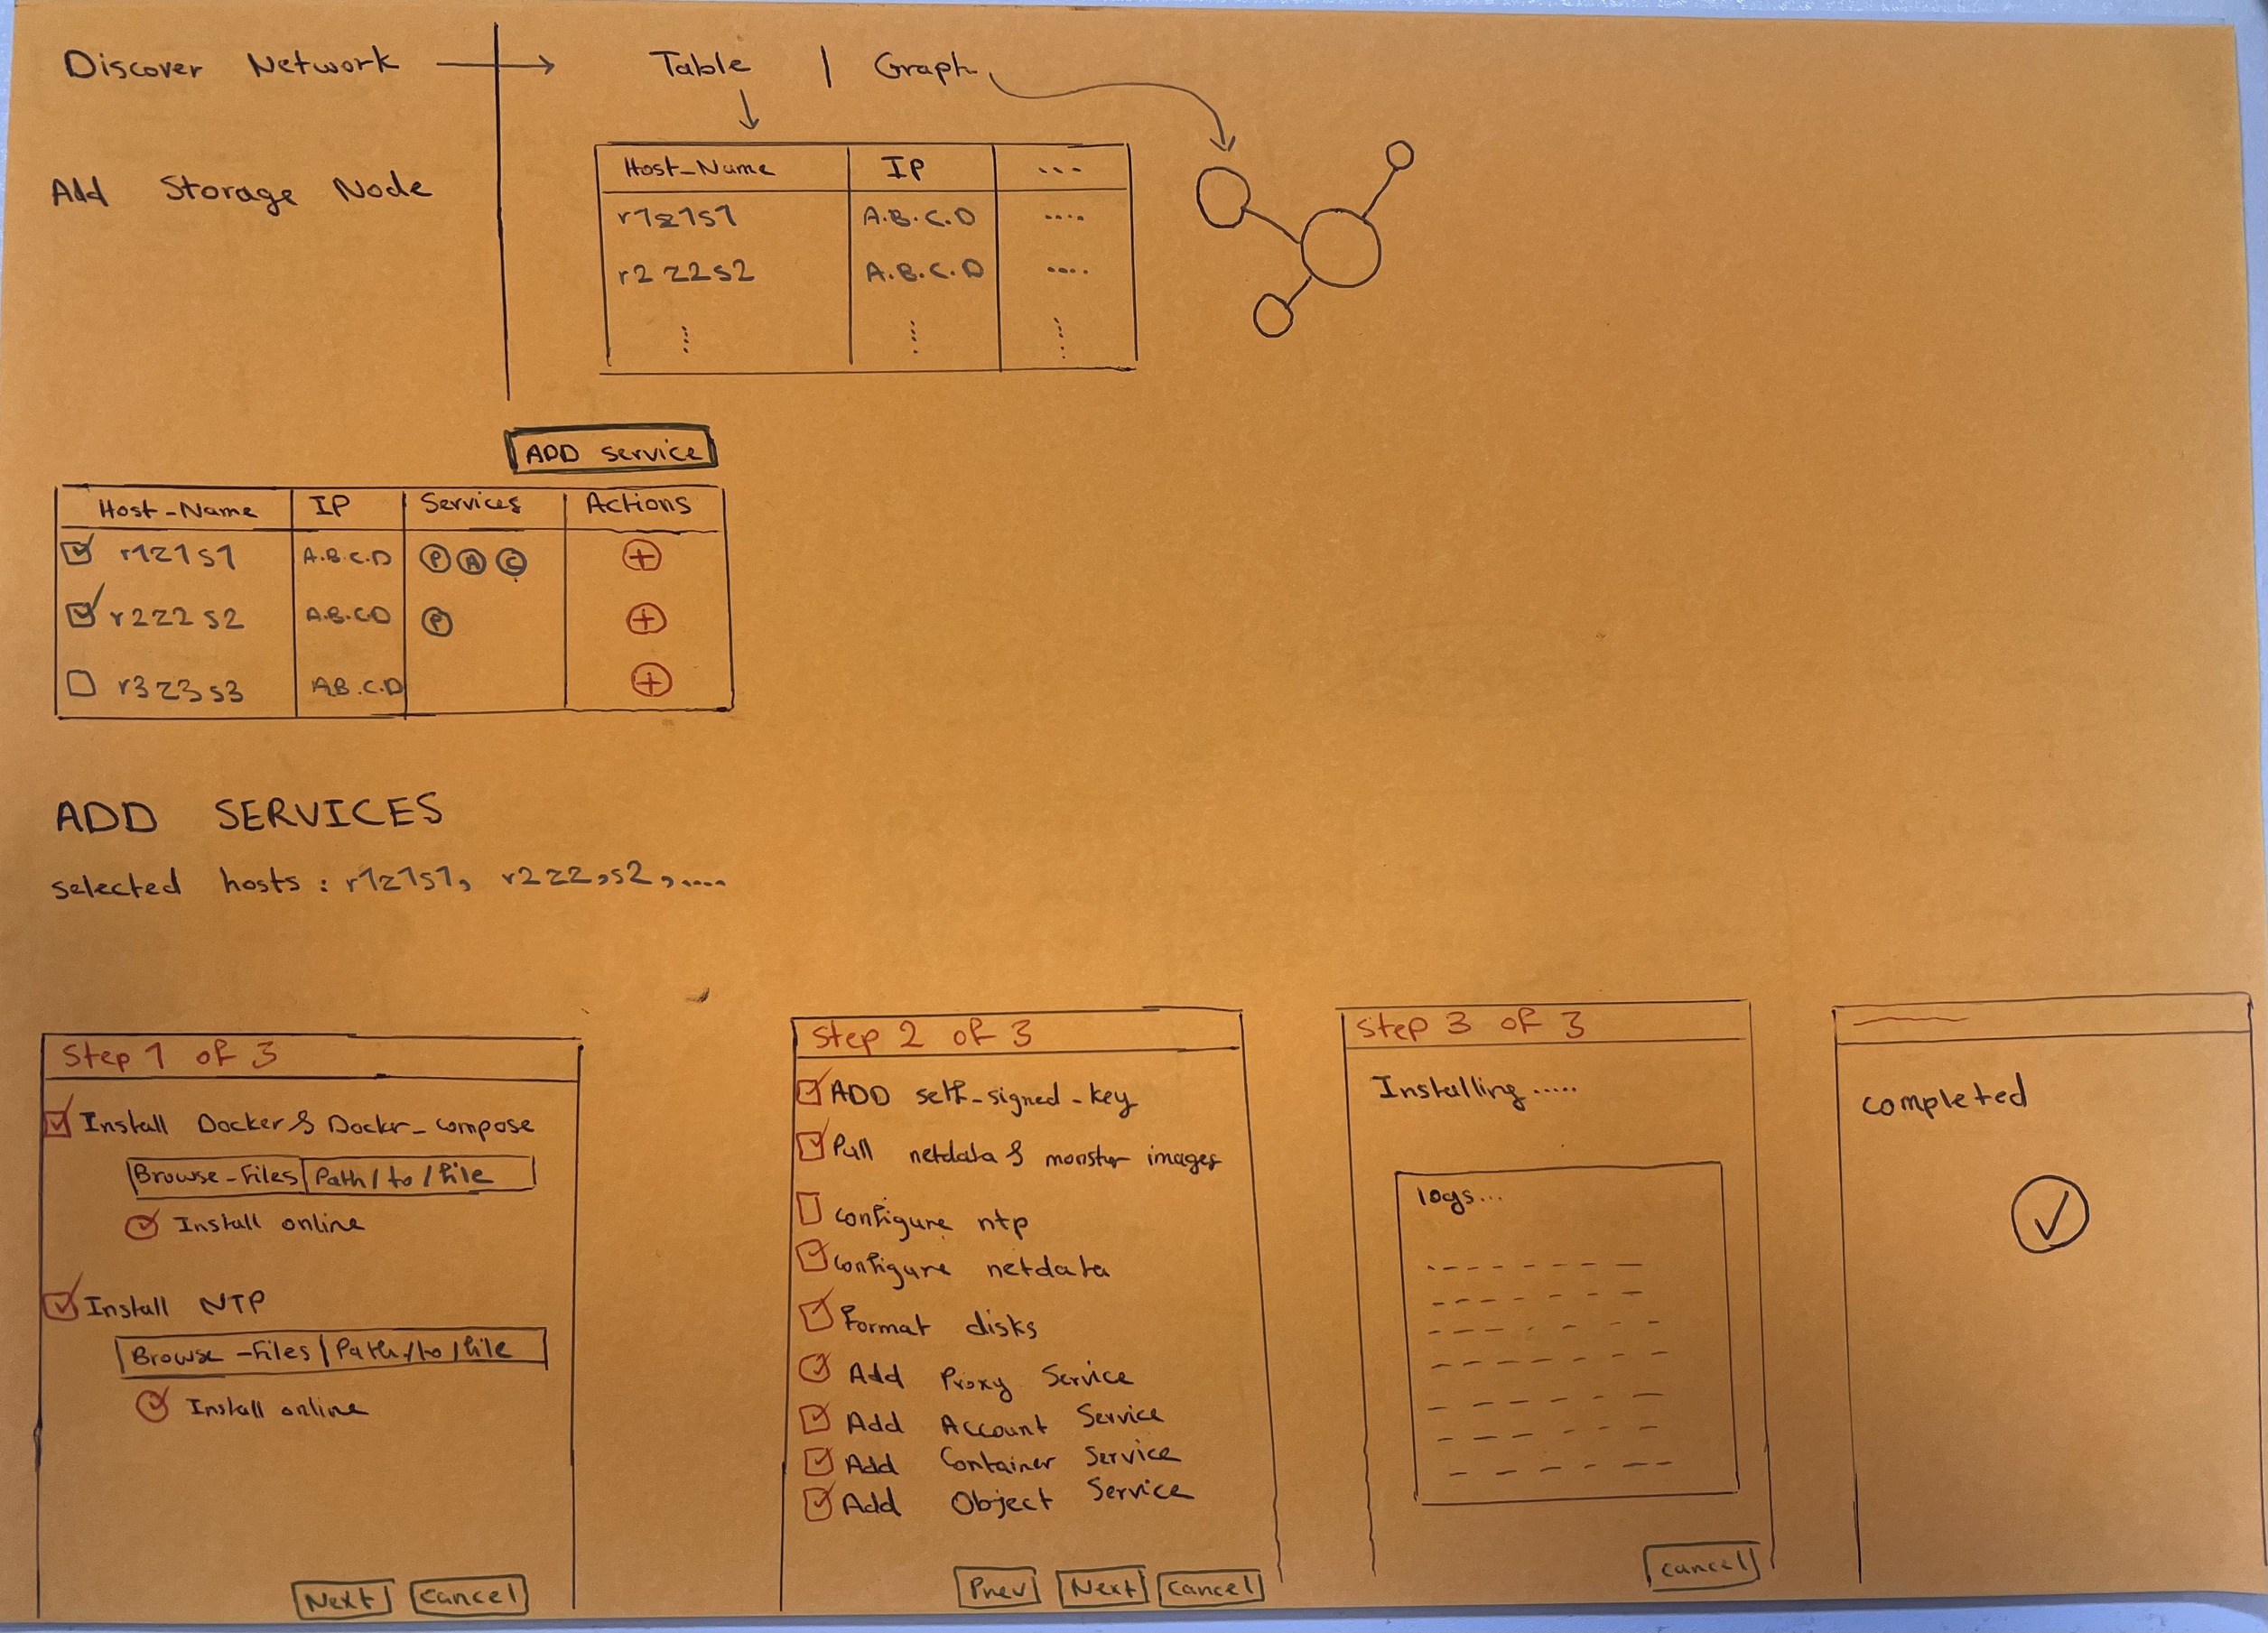 Discover Network
Table | Graph
Add Storage Node
Host_Name IP ...
r1z1s1 A.B.C.D ....
r2z2s2 A.B.C.D ....
ADD service
Host_Name IP Services Actions
r1z1s1 A.B.C.D P A C +
r2z2s2 A.B.C.D P +
r3z3s3 A.B.C.D +
ADD SERVICES
selected hosts : r1z1s1, r2z2,s2,....
Step 1 of 3
Install Docker & Docker_compose
Browse-files Path/to/file
Install online
Install NTP
Browse-files Path/to/file
Install online
Next Cancel
Step 2 of 3
ADD self_signed_key
Pull netdata & monster images
configure ntp
configure netdata
Format disks
Add Proxy Service
Add Account Service
Add Container Service
Add Object Service
Prev Next Cancel
Step 3 of 3
Installing.....
logs...
Cancel
completed